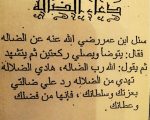 دعاء الضالة
سئل ابن عمر رضي الله عنه عن الضالة
فقال: يتوضأ ويصلي ركعتين ثم يتشهد
ثم يقول: الله رب الضالة، هادي الضلالة
تهدي من الضلاله رد علي ضالتي
بعزتك وسلطانك ، فإنها من فضلك
وعطائك